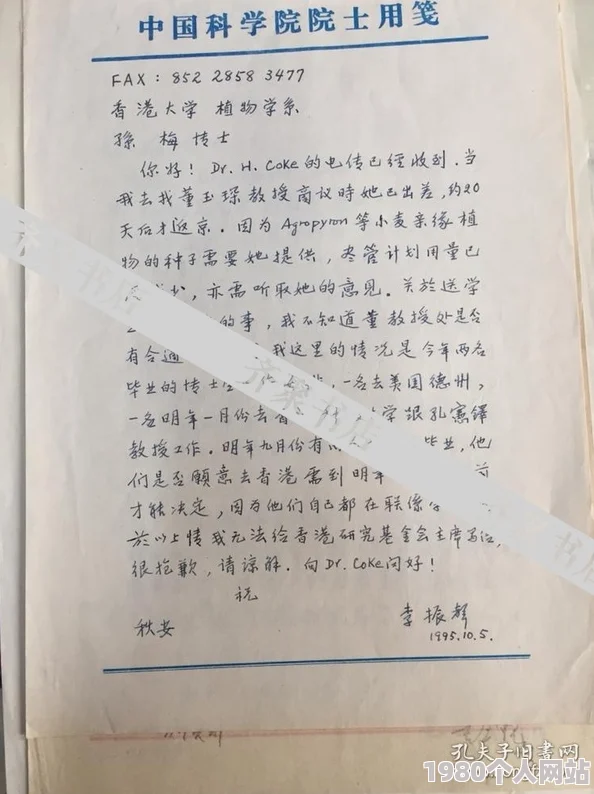 中国科学院院士用笺
FAX: 852 2858 3477
香港大学 植物学系
孫 梅 博士
你好! Dr. H. Coke 的电传已經收到. 当
我去找董玉琛教授商议时她已出差, 约20
天后才返京. 因为 Agropyron 等小麦亲缘植
物的种子需要她提供, 尽管计划用量已
亦需听取她的意见. 关於送学
的事, 我不知道董教授处是否
有合适 我这里的情况是今年两名
毕业的博士 一名去美国德州,
一名明年一月份去香 学跟孔憲鐸
教授工作. 明年九月份有 毕业, 他
们是否願意去香港需到明年
才能决定, 因为他们自己都在联係
於以上情 我无法给香港研究基金会主席写信,
很抱歉, 请諒解. 向 Dr. Coke 问好!
祝
秋安
李振声
1995.10.5.
齐聚书店
孔夫子旧书网
1980个人网站